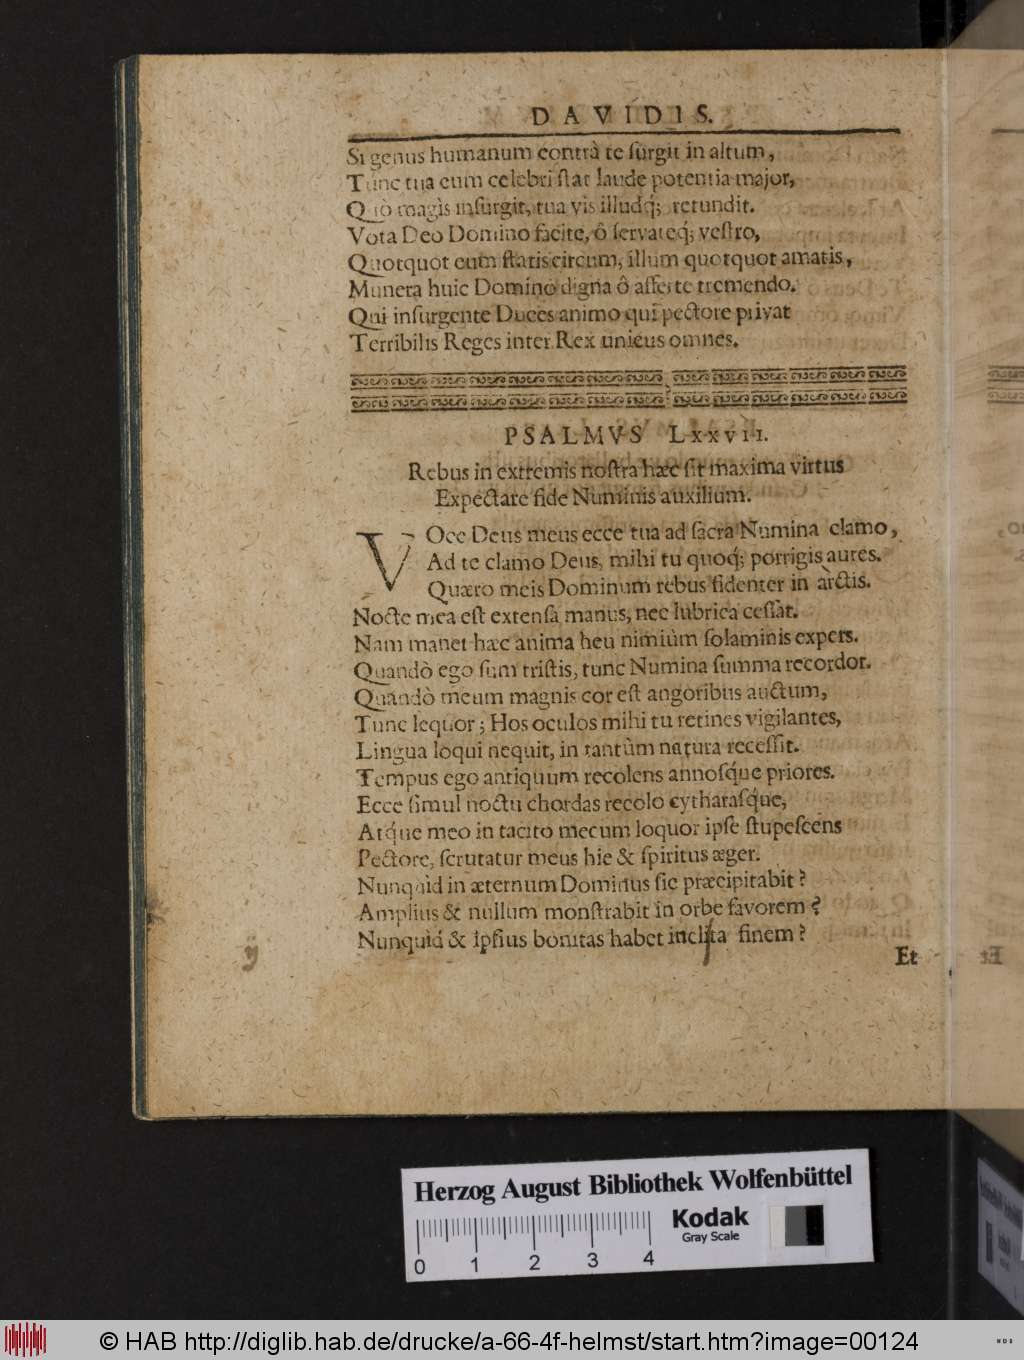 DAVIDIS.
Si genus humanum contrà te ſurgit in altum,
Tunc tua cum celebri ſtat laude potentia major,
Quò magìs inſurgit, tua vis illudq́; retundit.
Vota Deo Domino facite, ô ſervateq́; veſtro,
Quotquot eum ſtatis circum, illum quotquot amatis,
Munera huic Domino digna ô afferte tremendo.
Qui inſurgente Duces animo quî pectore privat
Terribilis Reges inter Rex unicus omnes.
PSALMVS LXXVII.
Rebus in extremis noſtra hæc ſit maxima virtus
Expectare fide Numinis auxilium.
VOce Deus meus ecce tua ad ſacra Numina clamo,
Ad te clamo Deus, mihi tu quoq́; porrigis aures.
Quæro meis Dominum rebus fidenter in àrctis.
Nocte mea eſt extenſa manus, nec lubrica ceſſat.
Nam manet hæc anima heu nimiùm ſolaminis expers.
Quandò ego ſum triſtis, tunc Numina ſumma recordor.
Quandò meum magnis cor eſt angoribus auctum,
Tunc lequor; Hos oculos mihi tu retines vigilantes,
Lingua loqui nequit, in tantùm natura receſſit.
Tempus ego antiquum recolens annoſq́ue priores.
Ecce ſimul noctu chordas recolo cytharaſq́ue,
Atq́ue meo in tacito mecum loquor ipſe ſtupeſcens
Pectore, ſcrutatur meus hic & ſpiritus æger.
Nunquid in æternum Dominus ſic præcipitabit?
Amplius & nullum monſtrabit in orbe favorem?
Nunquid & ipſius bonitas habet inclita finem?
Et
Herzog August Bibliothek Wolfenbüttel
Kodak
Gray Scale
0 1 2 3 4
© HAB http://diglib.hab.de/drucke/a-66-4f-helmst/start.htm?image=00124